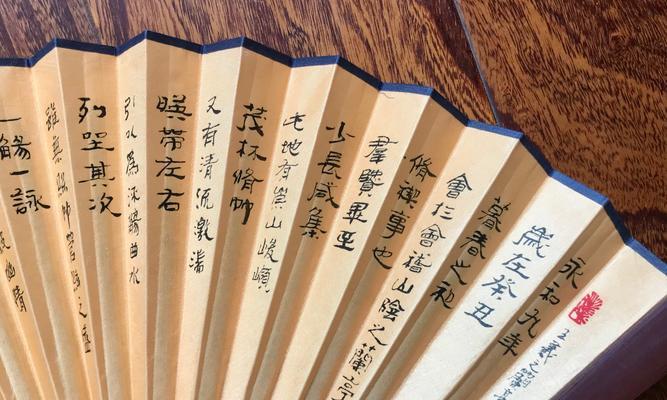 王羲之
永和九年
歲在癸丑
暮春之初
會於會稽山陰之蘭亭
脩禊事也
羣賢畢至
少長咸集
此地有崇山峻嶺
茂林脩竹
又有清流激湍
暎帶左右
引以為流觴曲水
列坐其次
雖無絲竹管弦之盛
一觴一詠
幽情